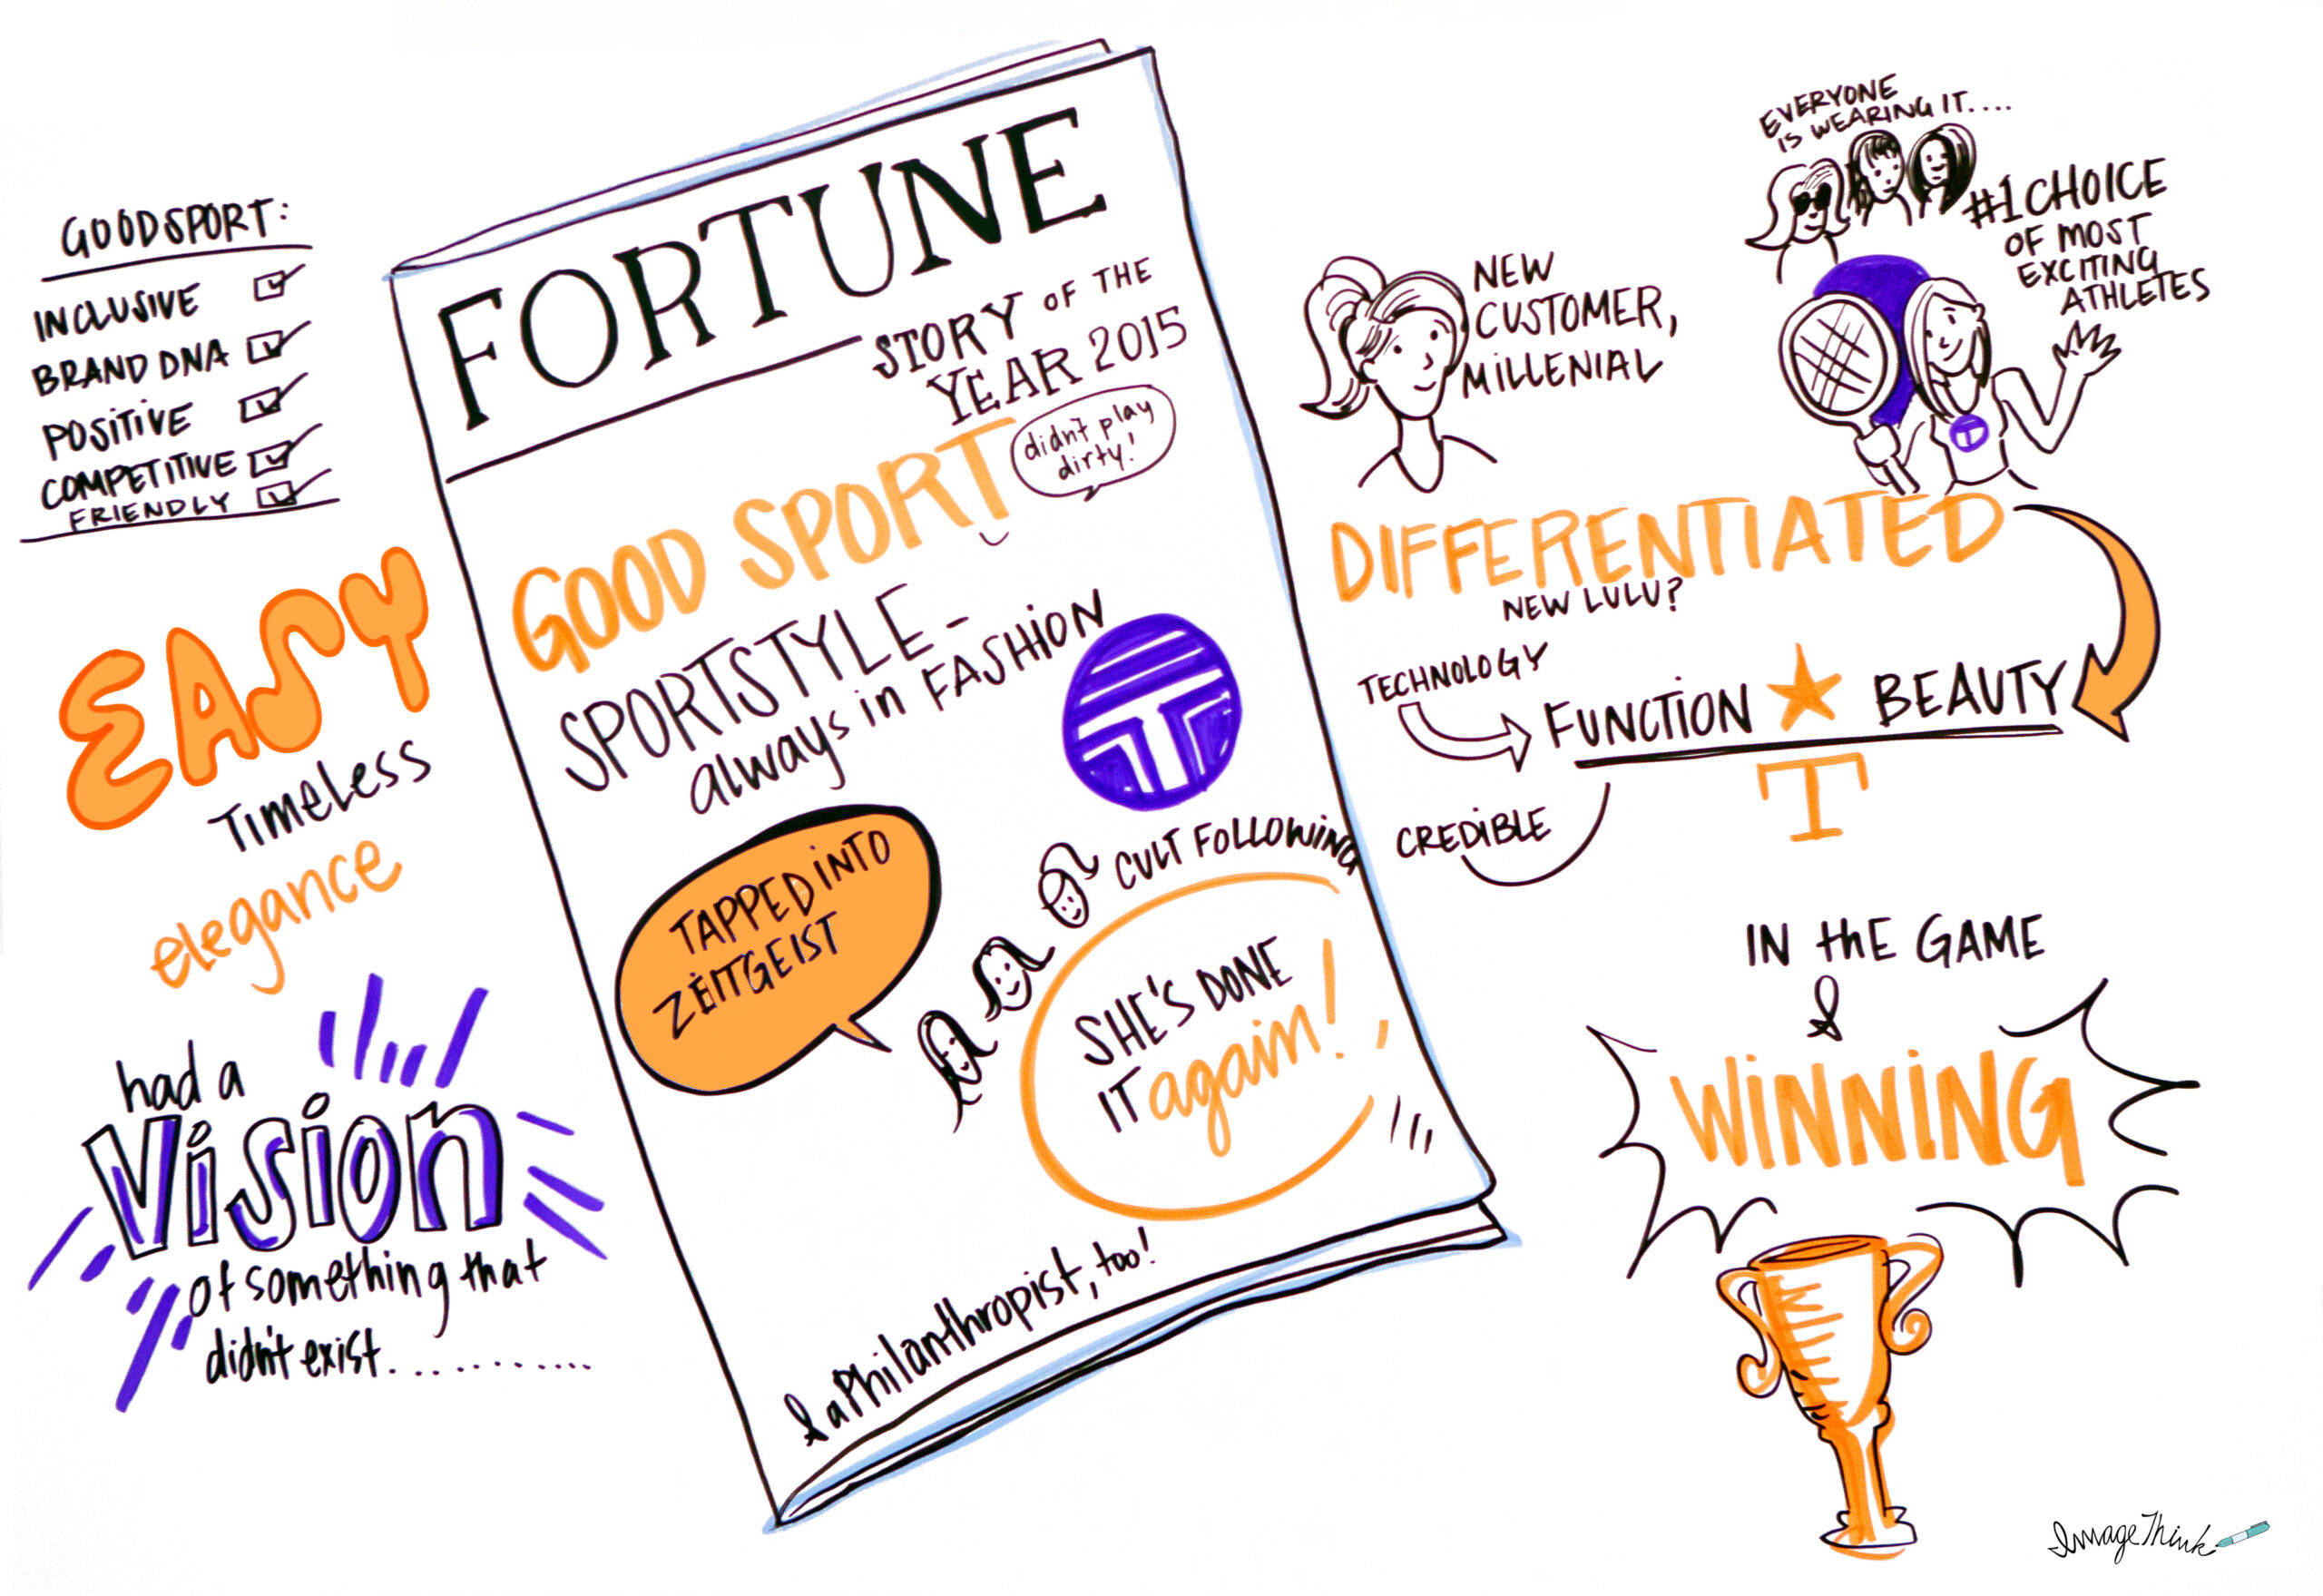 GOODSPORT:
INCLUSIVE
BRAND DNA
POSITIVE
COMPETITIVE
FRIENDLY
EASY
TIMELESS
elegance
had a
Vision
of something that
didn't exist............
FORTUNE
STORY OF THE
YEAR 2015
GOOD SPORT
didn't play
dirty!
SPORTSTYLE -
always in FASHION
T
TAPPED INTO
ZEITGEIST
CULT FOLLOWING
SHE'S DONE
IT again!
& a Philanthropist, too!
NEW
CUSTOMER,
MILLENIAL
EVERYONE
IS WEARING IT....
#1 CHOICE
OF MOST
EXCITING
ATHLETES
T
DIFFERENTIATED
NEW LULU?
TECHNOLOGY
FUNCTION ★ BEAUTY
T
CREDIBLE
IN thE GAME
&
WINNING
ImageThink